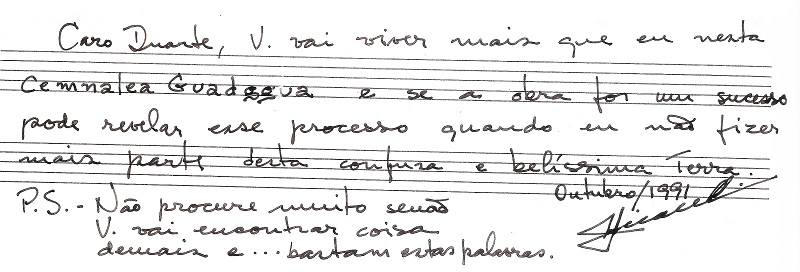 Caro Duarte, V. vai viver mais que eu nesta
Cemnalea Guadagua e se a obra for um sucesso
pode revelar esse processo quando eu não fizer
mais parte desta confusa e belíssima Terra.
Outubro/1991
P.S. - Não procure muito senão
V. vai encontrar coisa
demais e... bastam estas palavras.